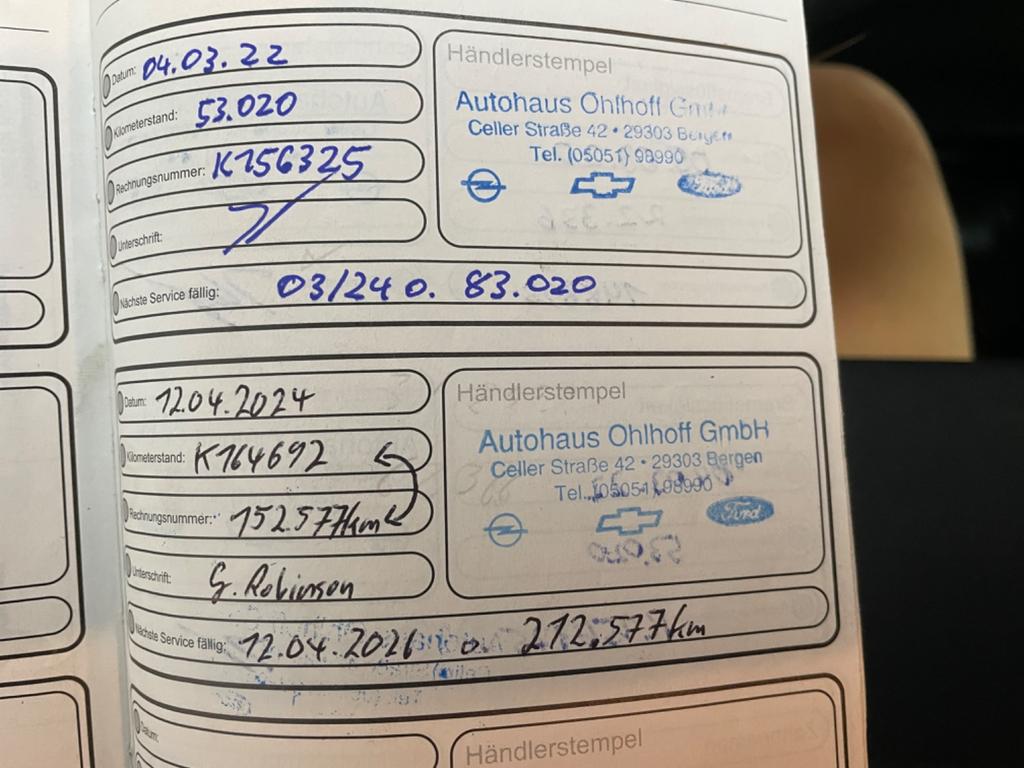 Datum: 04.03.22
Kilometerstand: 53.020
Rechnungsnummer: K156325
Unterschrift:
Nächste Service fällig: 03/24 o. 83.020
Händlerstempel
Autohaus Ohlhoff GmbH
Celler Straße 42 • 29303 Bergen
Tel. (05051) 98990
Datum: 12.04.2024
Kilometerstand: K164692
Rechnungsnummer: 152.577km
Unterschrift: G. Robinson
Nächste Service fällig: 12.04.2026 o. 212.577km
Händlerstempel
Autohaus Ohlhoff GmbH
Celler Straße 42 • 29303 Bergen
Tel. (05051) 98990
Ford
Datum:
Händlerstempel